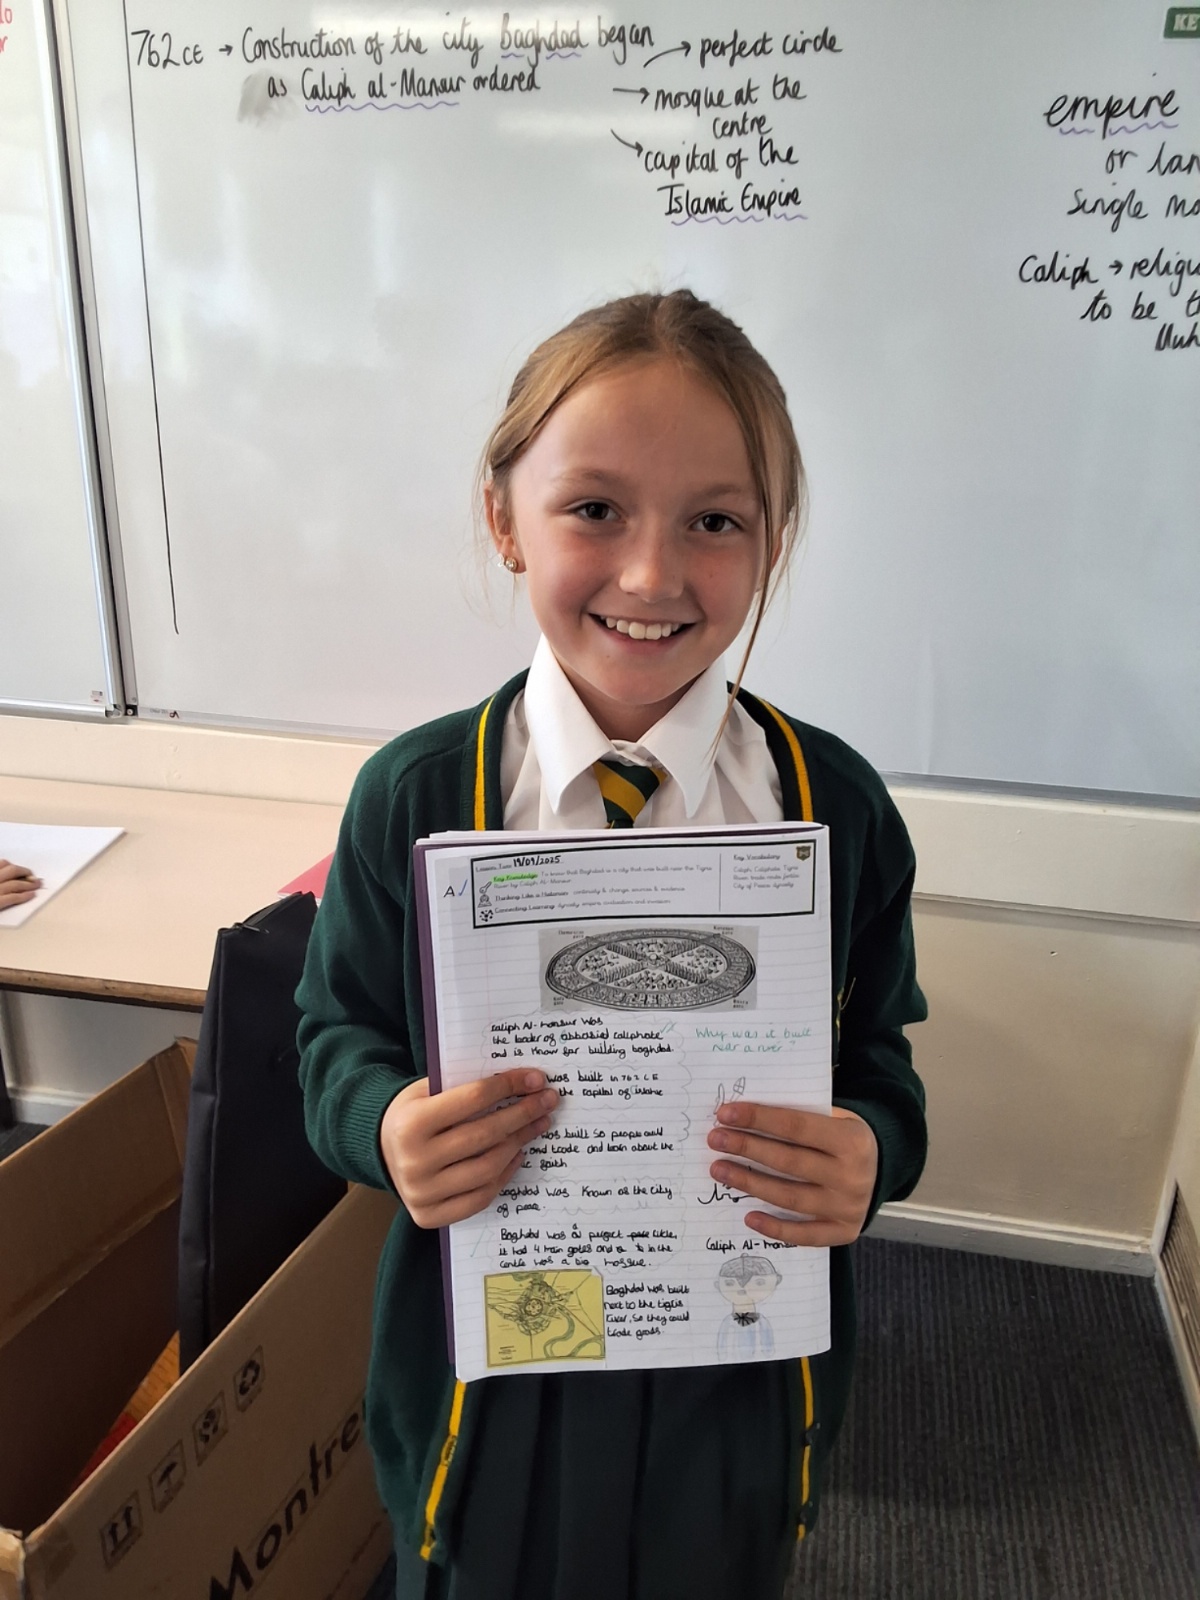 762 CE → Construction of the city Baghdad began
as Caliph al-Mansur ordered
→ perfect circle
→ mosque at the
centre
→ capital of the
Islamic Empire
KE
empire
or lan
single mo
Caliph → religi
to be t
Muh
19/09/2025
Key Knowledge: To know that Baghdad is a city that was built near the Tigris
River by Caliph Al-Mansur
Thinking Like a Historian: continuity & change, sources & evidence
Connecting Learning: dynasty, empire, civilisation and invasion
Key Vocabulary
Caliph, Caliphate, Tigris
River, trade route,
City of Peace, dynasty
A✓
Caliph Al-Mansur was
the leader of abbasid caliphate
and is know for building baghdad.
was built in 762 CE
the capital of islamic
was built so people could
, and trade and learn about the
ic faith
Baghdad was known as the city
of peace.
Baghdad was a perfect circle,
it had 4 main gates and in the
centre was a big mosque.
Why was it built
near a river?
Caliph Al-Mansu
Baghdad was built
next to the tigris
river, so they could
trade goods.
Montre